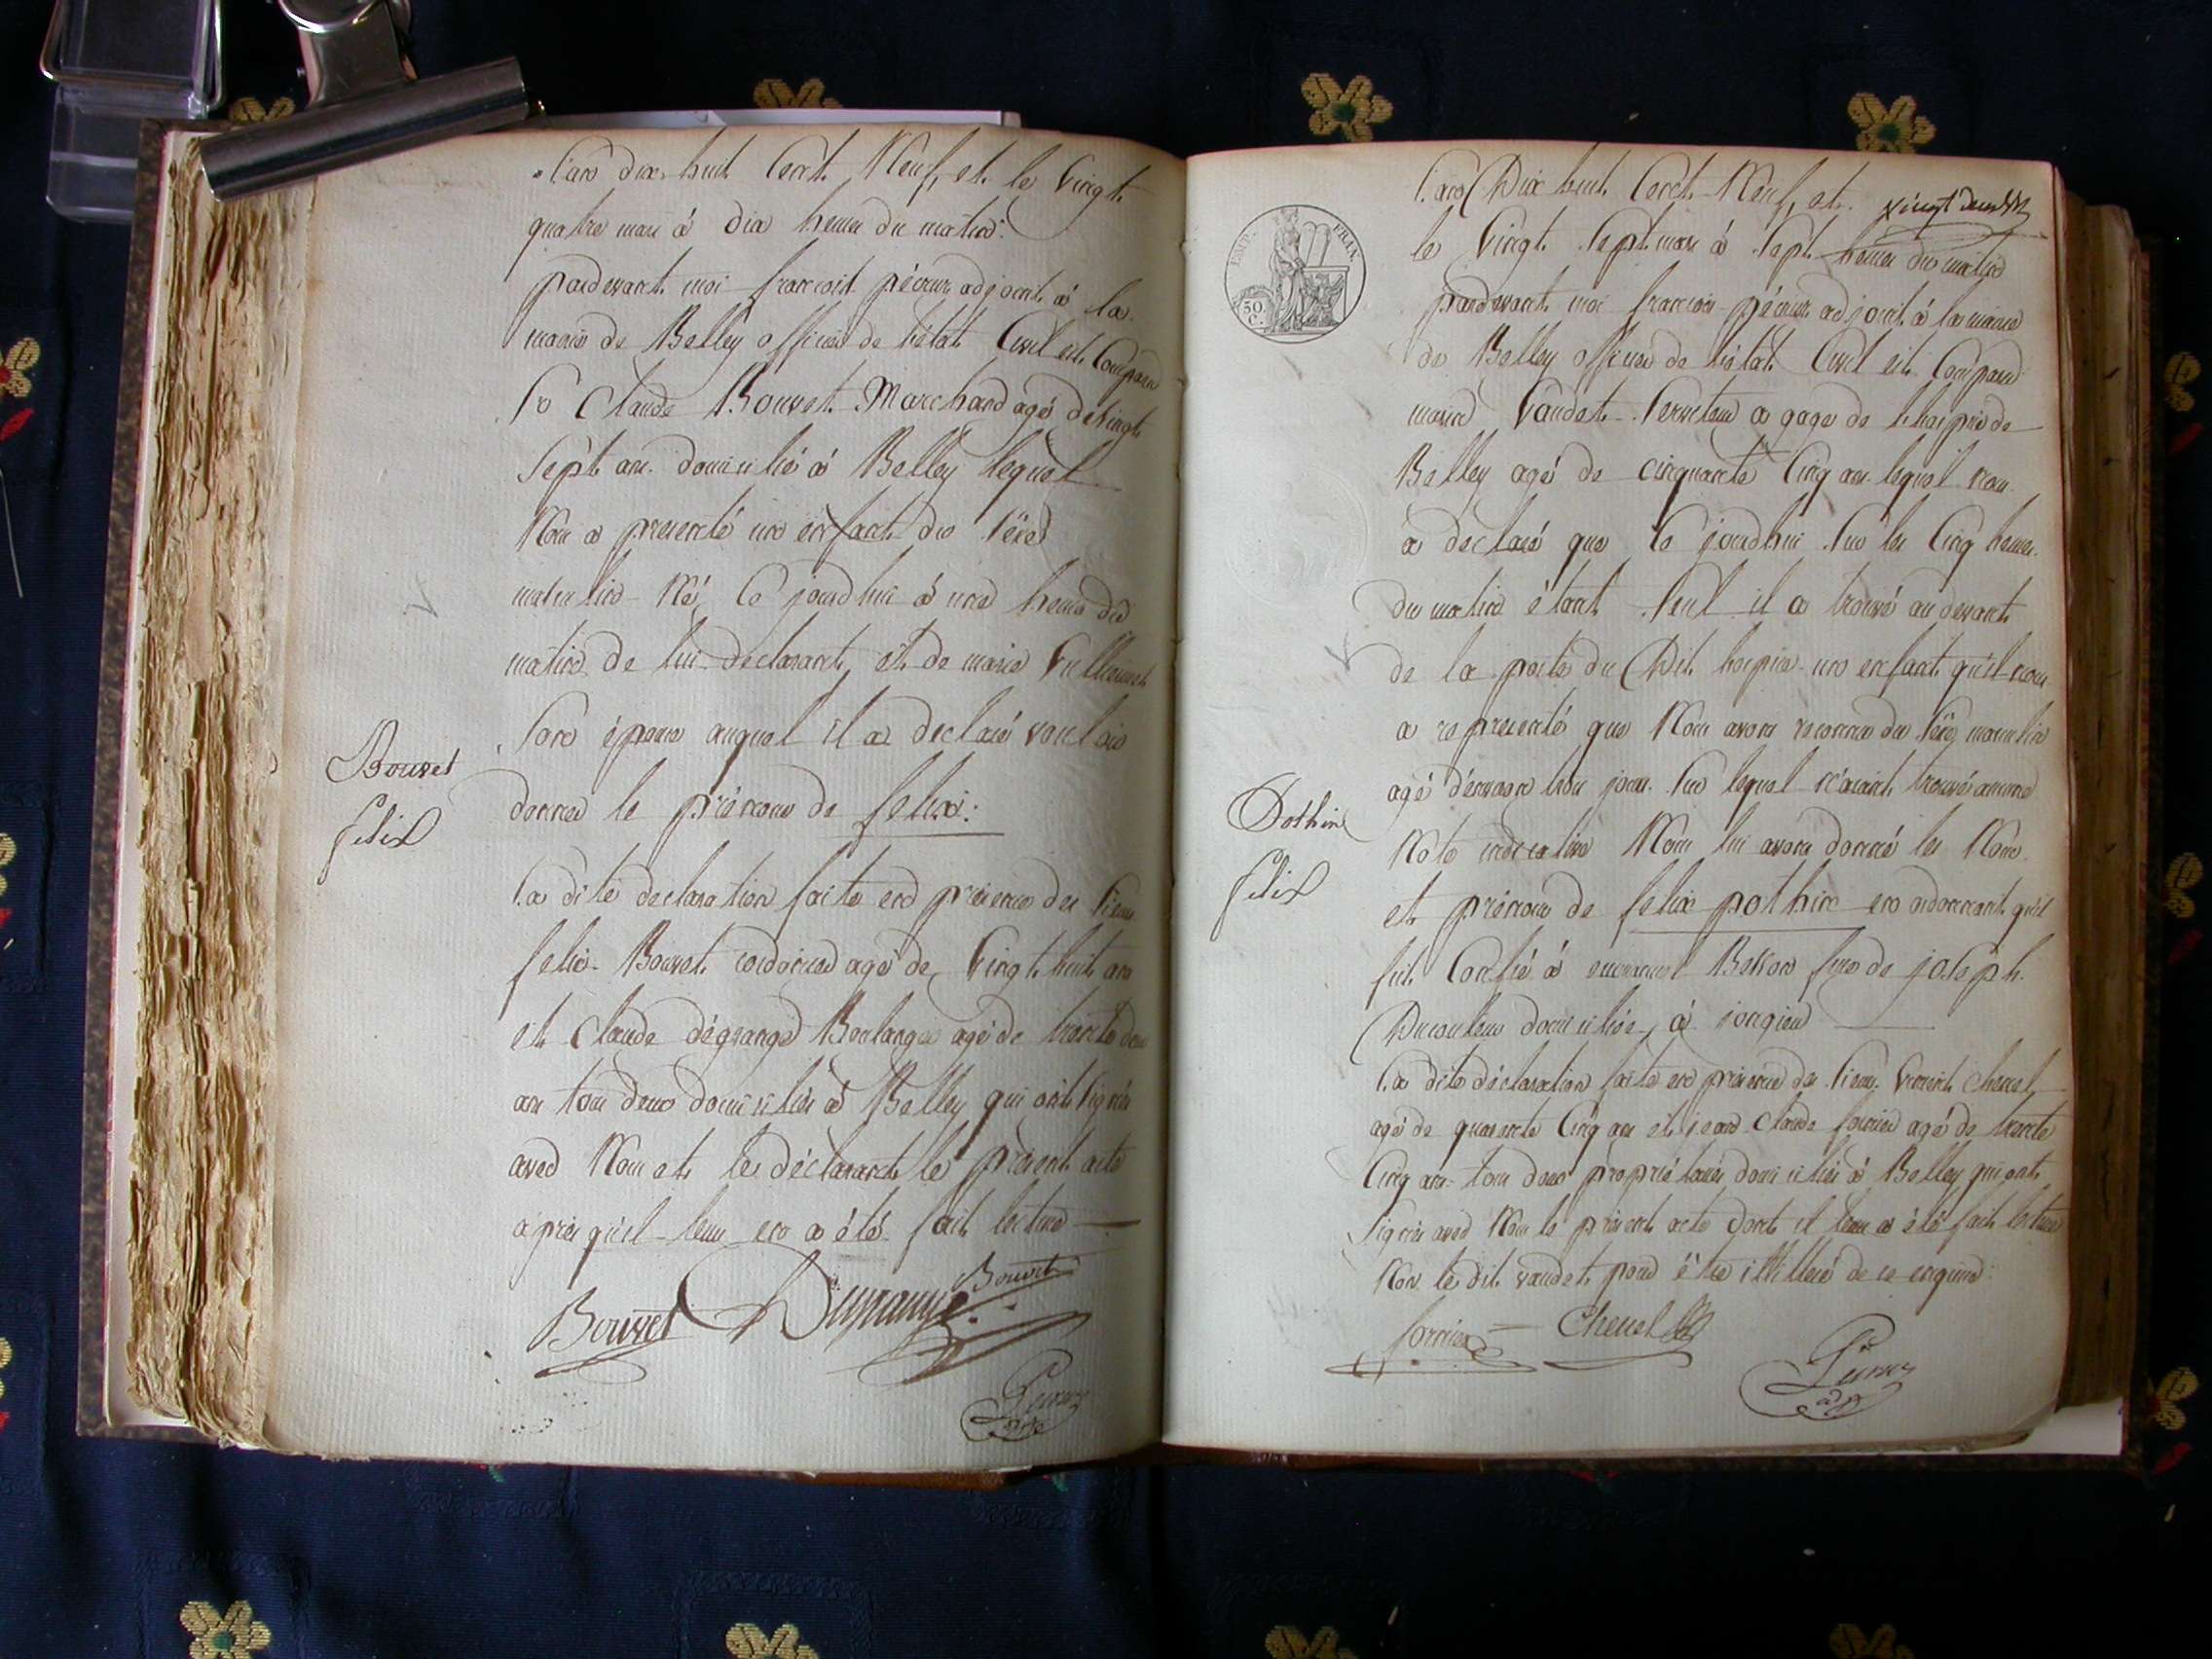 L'an dix huit Cent Neuf, et le Vingt
quatre mars à dix heures du matin:
pardevant moi francois pécour adjoint à la
mairie de Belley officier de l'état Civil est Comparu
Sr Claude Bouvet Marchand agé de Vingt
Sept ans domicilié à Belley lequel
Nous a presenté un enfant du Sexe
masculin Né Ce jourdhui à une heure du
matin de lui declarant, et de marie
Son épouse auquel il a declaré vouloir
donner le prénom de felix:
Bouvet
felix
La dite declaration faite en présence des Sieurs
felix Bouvet agé de Vingt huit ans
et Claude dégrange Boulanger agé de trente deux
ans tous deux domiciliés à Belley qui ont Signés
avec Nous et le déclarant le présent acte
après qu'il leur en a été fait lecture
Bouvet
Bouvet
adjt
EMP. FRAN.
50 C.
vingt deux
L'an Dix huit Cent Neuf, et
le Vingt Sept mars à Sept heures du matin
pardevant moi francois pécour adjoint à la mairie
de Belley officier de l'état Civil est Comparu
Vaudet Serviteur a gage de l'hospice de
Belley agé de cinquante Cinq ans lequel nous
a declaré que Ce jourdhui Sur les Cinq heures
du matin étant Seul il a trouvé au devant
de la porte du Dit hospice un enfant qu'il nous
a representé que Nous avons reconnu du Sexe masculin
agé d'environ trois jours Sur lequel n'aiant trouvé aucune
Note indicative Nous lui avons donné les Nom
et prénom de felix pothin en ordonnant qu'il
fut Confié à femme de joseph
Ducouleur domiciliée à
pothin
felix
La dite déclaration faite en présence des Sieurs Vincent Chenel
agé de quarante Cinq ans et jean Claude fornier agé de trente
Cinq ans tous deux propriétaires domiciliés à Belley qui ont
Signés avec Nous le présent acte dont il leur a été fait lecture
Non le dit vaudet pour être illitteré de ce enquis
fornier Chenel
adjt